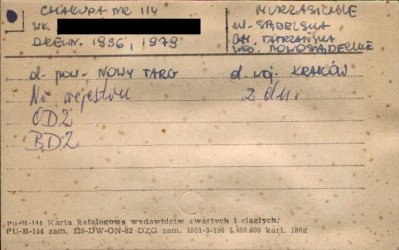 CHAŁUPA NR 114
WK.
DREWN. 1896, 1979
MURZASICHLE
W. SĄDELSKA
GM. TATRZAŃSKA
WOJ. NOWOSĄDECKIE
d. pow. NOWY TARG
d. woj. KRAKÓW
Nr rejestru
z dn.
OD2
BD2
PU-H-144 Karta katalogowa wydawnictw zwartych i ciągłych.
PU-H-144 zam. 129-DW-ON-62 DZG zam. 1501-3-196 5,450.000 kart. 180g